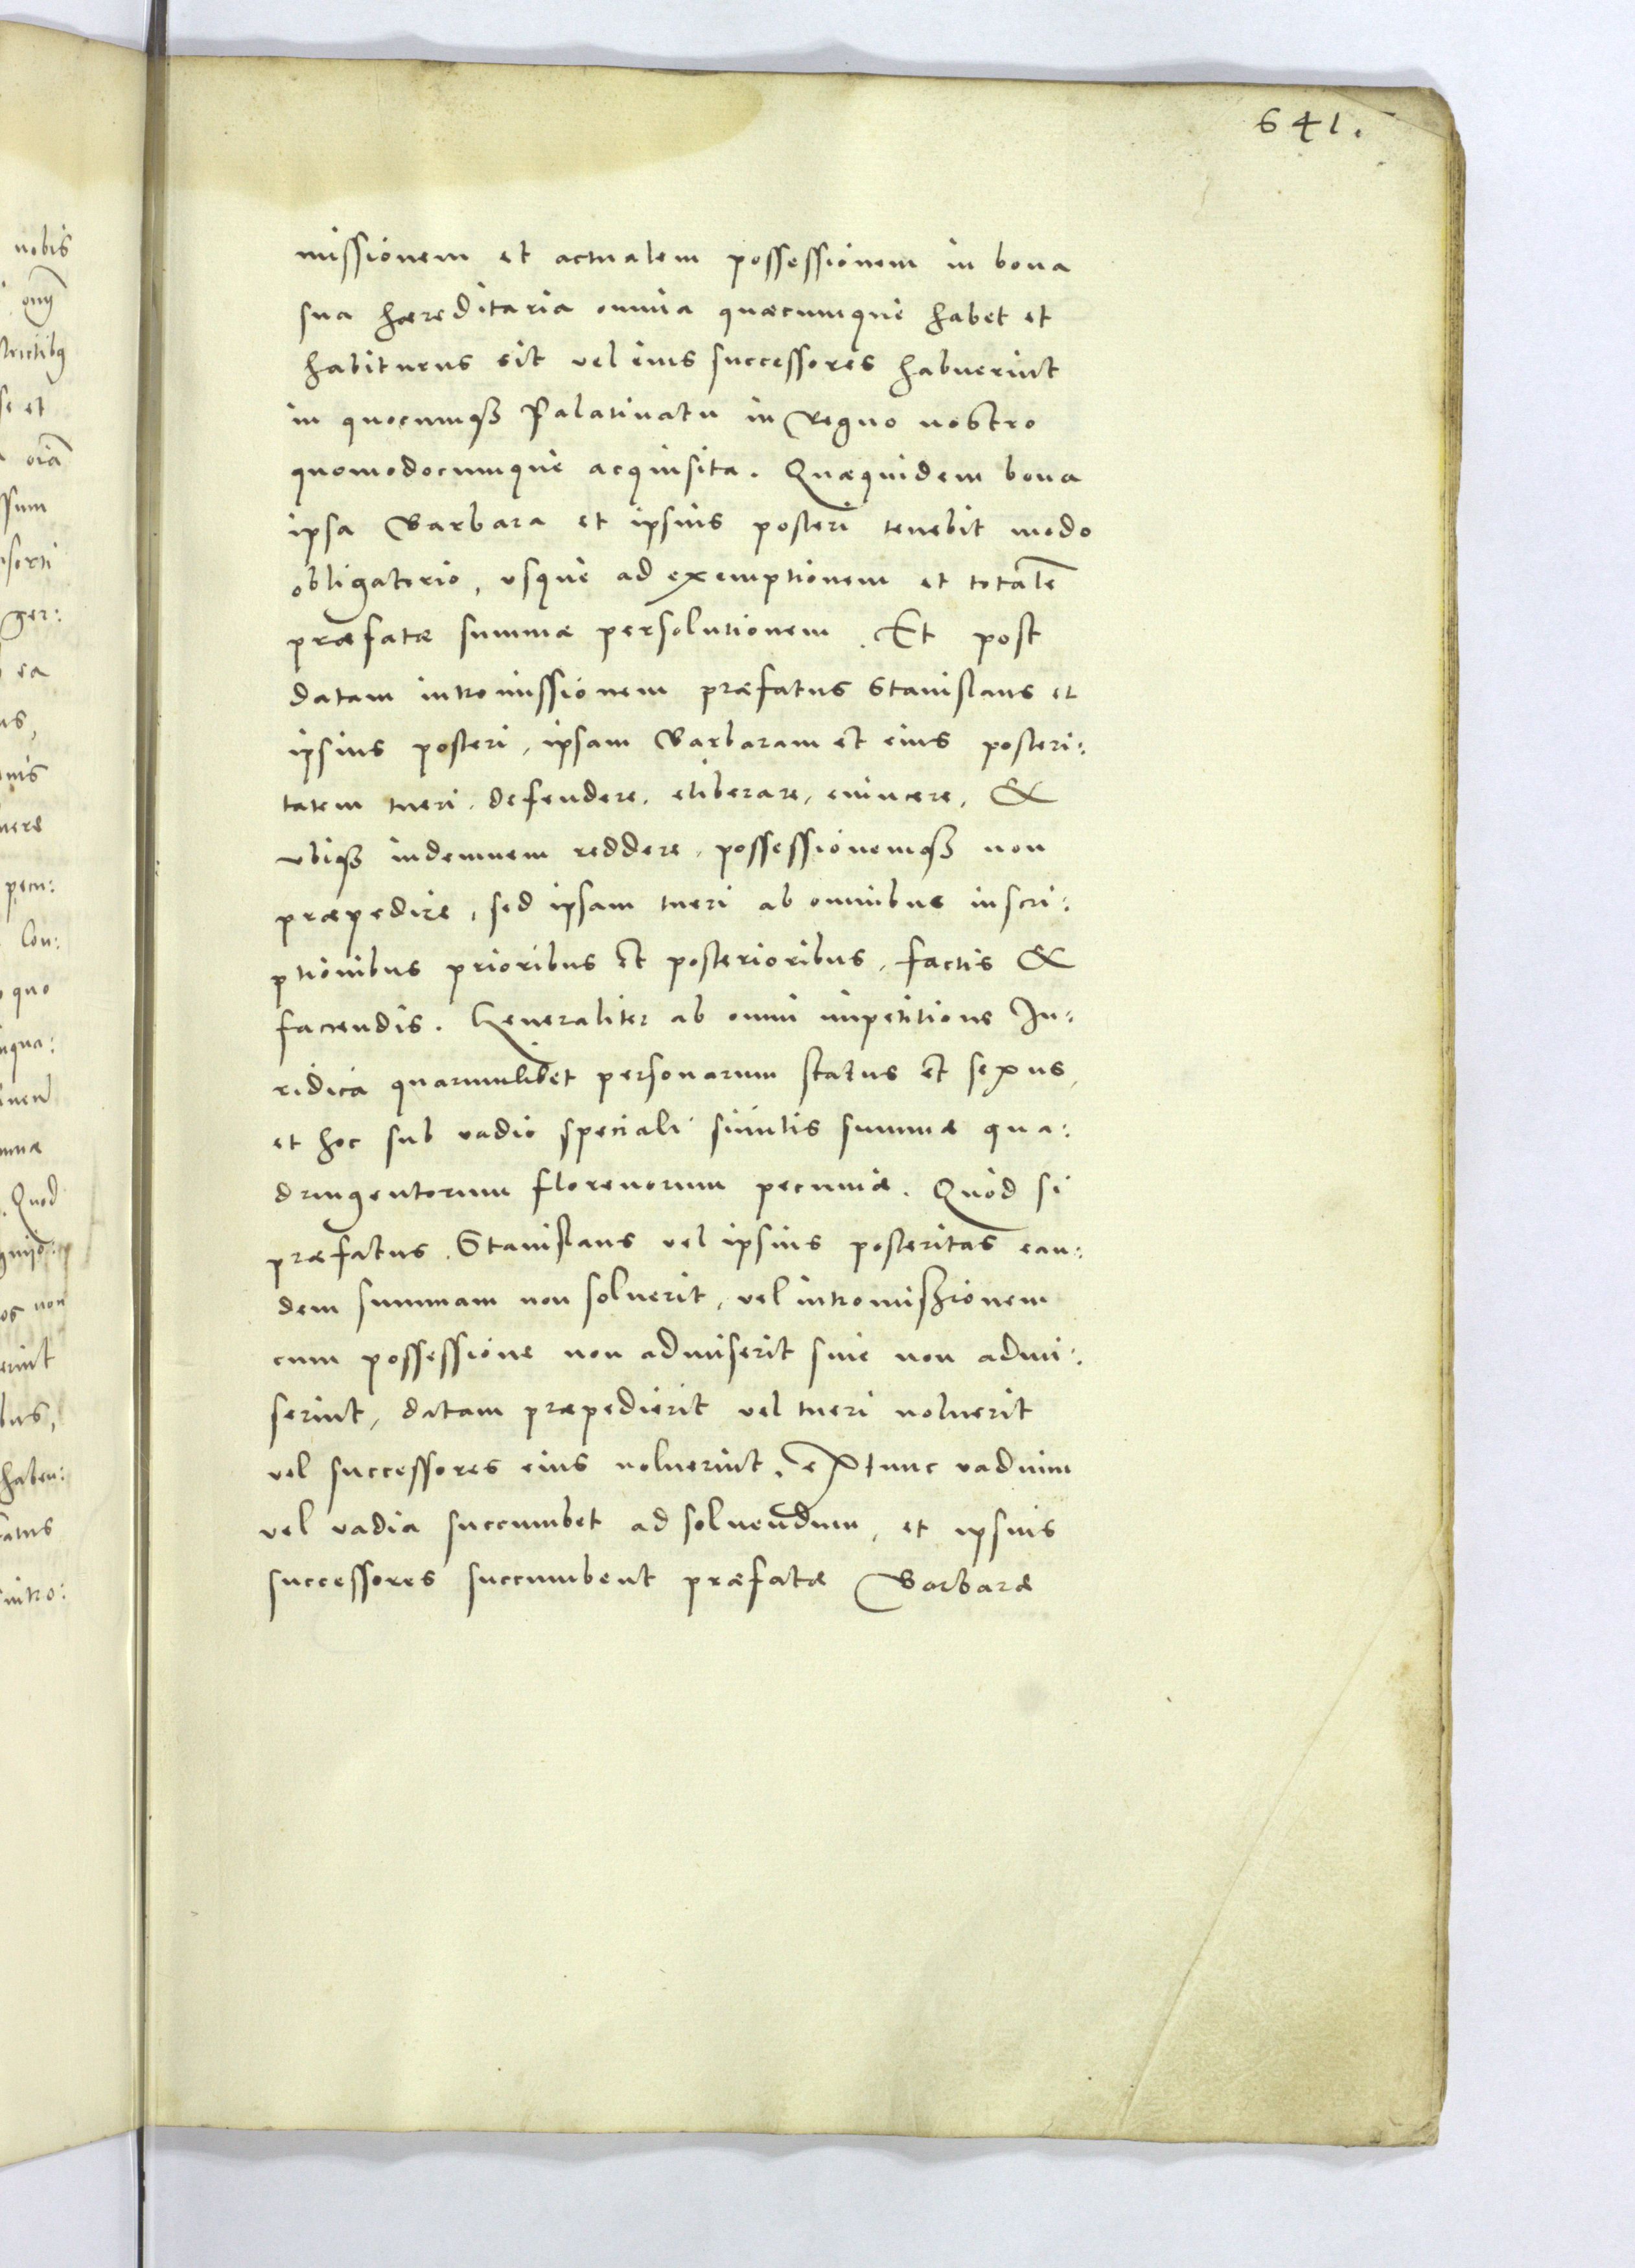 641.
missionem et actualem possessionem in bona
sua hæreditaria omnia quæcumque habet et
habiturus sit vel eius successores habuerint
in quocumqꝫ Palatinatu in Regno nostro
quomodocumque acquisita. Quæquidem bona
ipsa Barbara et ipsius posteri tenebit modo
obligatorio, vsque ad exemptionem et totalē
præfatæ summæ persolutionem. Et post
datam intromissionem præfatus Stanislaus et
ipsius posteri, ipsam Barbaram et eius posteri:
tatem tueri, defendere, eliberare, euincere, &
vbiqꝫ indemnem reddere, possessionemqꝫ non
præpedire, sed ipsam tueri ab omnibus inscri:
ptionibus prioribus et posterioribus, factis &
faciendis. Generaliter ab omni impetitione Iu:
ridica quarumlibet personarum status et sexus,
et hoc sub vadio speciali similis summæ qua:
dringentorum florenorum pecuniæ. Quod si
præfatus Stanislaus vel ipsius posteritas ean:
dem summam non soluerit, vel intromissionem
cum possessione non admiserit siue non admi:
serint, datam præpedierit vel tueri noluerit
vel successores eius noluerint, extunc vadium
vel vadia succumbet ad soluendum, et ipsius
successores succumbent præfatæ Barbaræ
nobis
se et
oīa
ssum
ger:
ea
pecu:
Con:
quo
Quod
non
erint
haben:
intro: